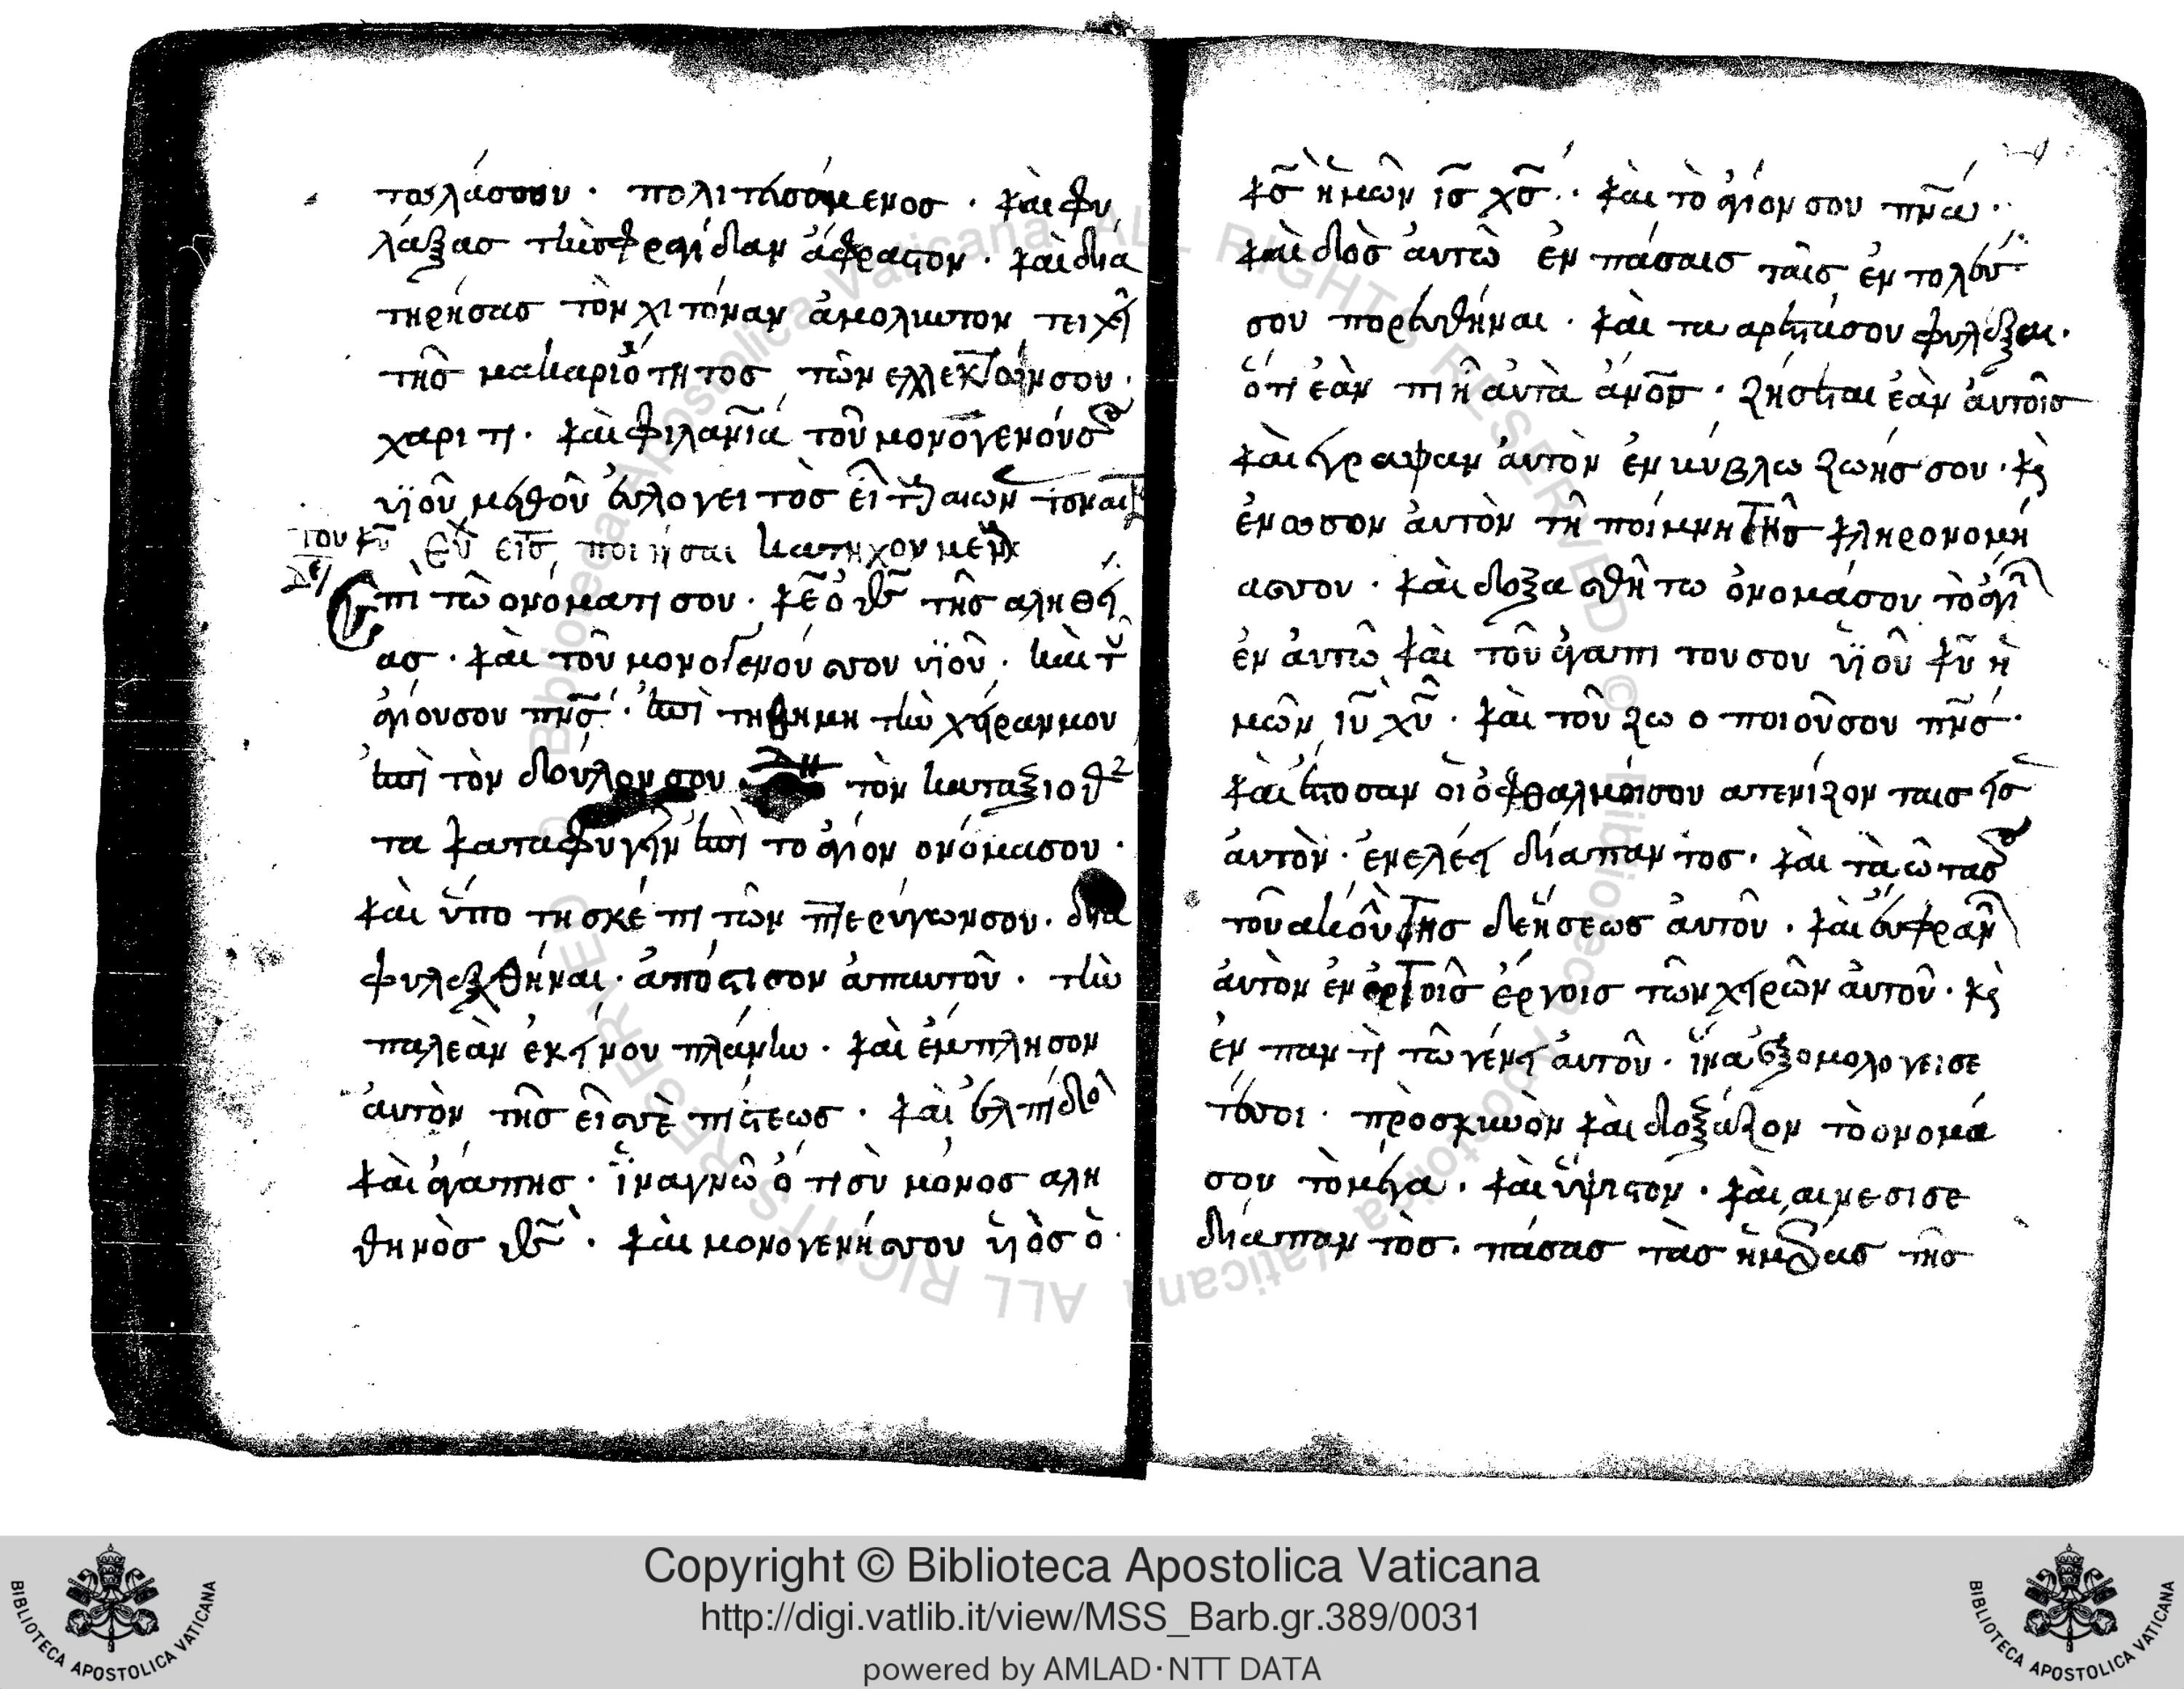 τολάσσου · πολιτευσάμενοσ · καὶ φυ
λάξας τὴν σφραγίδαν ἄφραστον · καὶ δια
τηρήσας τὸν χιτόναν ἀμολυντον τειχῆ
τῆσ μακαριότητοσ τῶν ἐλλεκτῶν σου ·
χαριτι · καὶ φιλανῖα τοῦ μονογενοῦσ
υἱοῦ μεθοῦ εὐλογειτὸσ εἶ
του κῦ εὐχ εἰσ ποιῆσαι κατηχουμεν
Επὶ τῶ ονόματι σου · κε ὁ θσ τῆσ αληθεί
ασ · καὶ τοῦ μονογενού σου υἱοῦ · καὶ τ
ἁγίου σου πνσ · ἐπὶ τηθημη τὴν χεῖραν μου
ἐπὶ τὸν δοῦλον σου τὸν καταξιοθ
τα καταφυγεῖν ἐπὶ το ἅγιον ονόμασου ·
καὶ ὕπο τη σκέπι τῶν πτερύγων σου · δια
φυλαχθήναι · ἀπόστισον ἀπαυτοῦ · τὴν
παλεὰν ἐκείνου πλάνην · καὶ ἐμπλησον
ἀυτὸν τῆσ εἶσσὲ πίστεωσ · καὶ ἐλπίδο
καὶ ἀγάπησ · ἵνα γνῶ ὅτι σὺ μόνοσ αλη
θηνὸσ θσ · καὶ μονογενή σου ὑιὸσ ὁ
κσ ἡμῶν ισ χσ · καὶ τὸ ἅγιον σου πνα ·
καὶ δὸσ ἀυτῶ ἐν πάσαισ ταῖσ ἐντολαῖσ
σου πορευθῆναι · καὶ τα αρεστάσου φυλάξαι ·
ὅτι ἐὰν πιῆ ἀυτὰ ἀνοσ · ζήσεται ἐὰν ἀυτοῖσ
καὶ γραψαν ἀυτὸν ἐν κυβλω ζωῆσ σου · κς
ἐνωσον ἀυτὸν τῆ ποίμνη τῆσ κληρονομή
ασσου · καὶ δοξασθῆ τω ὀνομάσου τὸ ἅγι
ἐν ἀυτῶ καὶ τοῦ ἀγαπιτου σου υἱοῦ κῦ ἡ
μῶν ιῦ χῦ · καὶ τοῦ ζωοποιοῦ σου πνσ ·
καὶ ἔστοσαν ὁι ὀφθαλμοί σου ατενιζον ταισ εἰσ
ἀυτὸν · ἐνελέει διαπαντοσ · καὶ τὰ ὦτασ
τοῦ ακοῦ τῆσ δεήσεωσ ἀυτοῦ · καὶ εὔφραν
ἀυτὸν ἐν ἐρτοῖσ ἔργοισ τῶν χειρῶν ἀυτοῦ · κς
ἐν παντὶ τῶ γένει ἀυτοῦ · ἵνα ἐξομολογεισε
ταίσοι · πρὸσκυνὸν καὶ δοξάζον τὸ ονομά
σου τὸ μέγα · καὶ ὕψιστον · καὶ αινεσισε
διαπαντὸσ · πάσασ τὰσ ἡμέρασ τῆσ
Copyright © Biblioteca Apostolica Vaticana
http://digi.vatlib.it/view/MSS_Barb.gr.389/0031
powered by AMLAD·NTT DATA
BIBLIOTECA APOSTOLICA VATICANA
BIBLIOTECA APOSTOLICA VATICANA